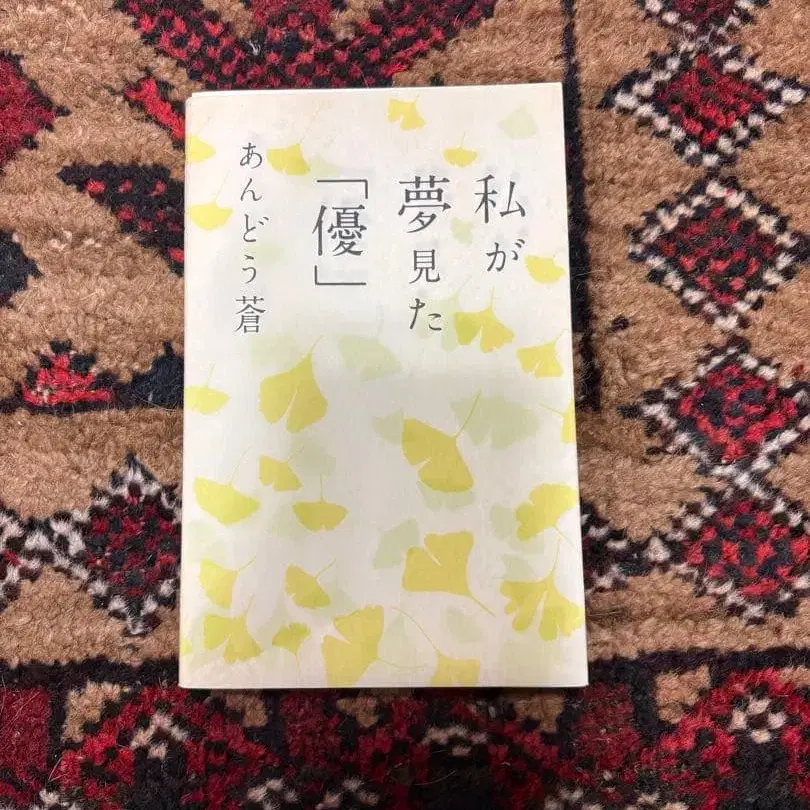 私が
夢見た
「優」
あんどう蒼